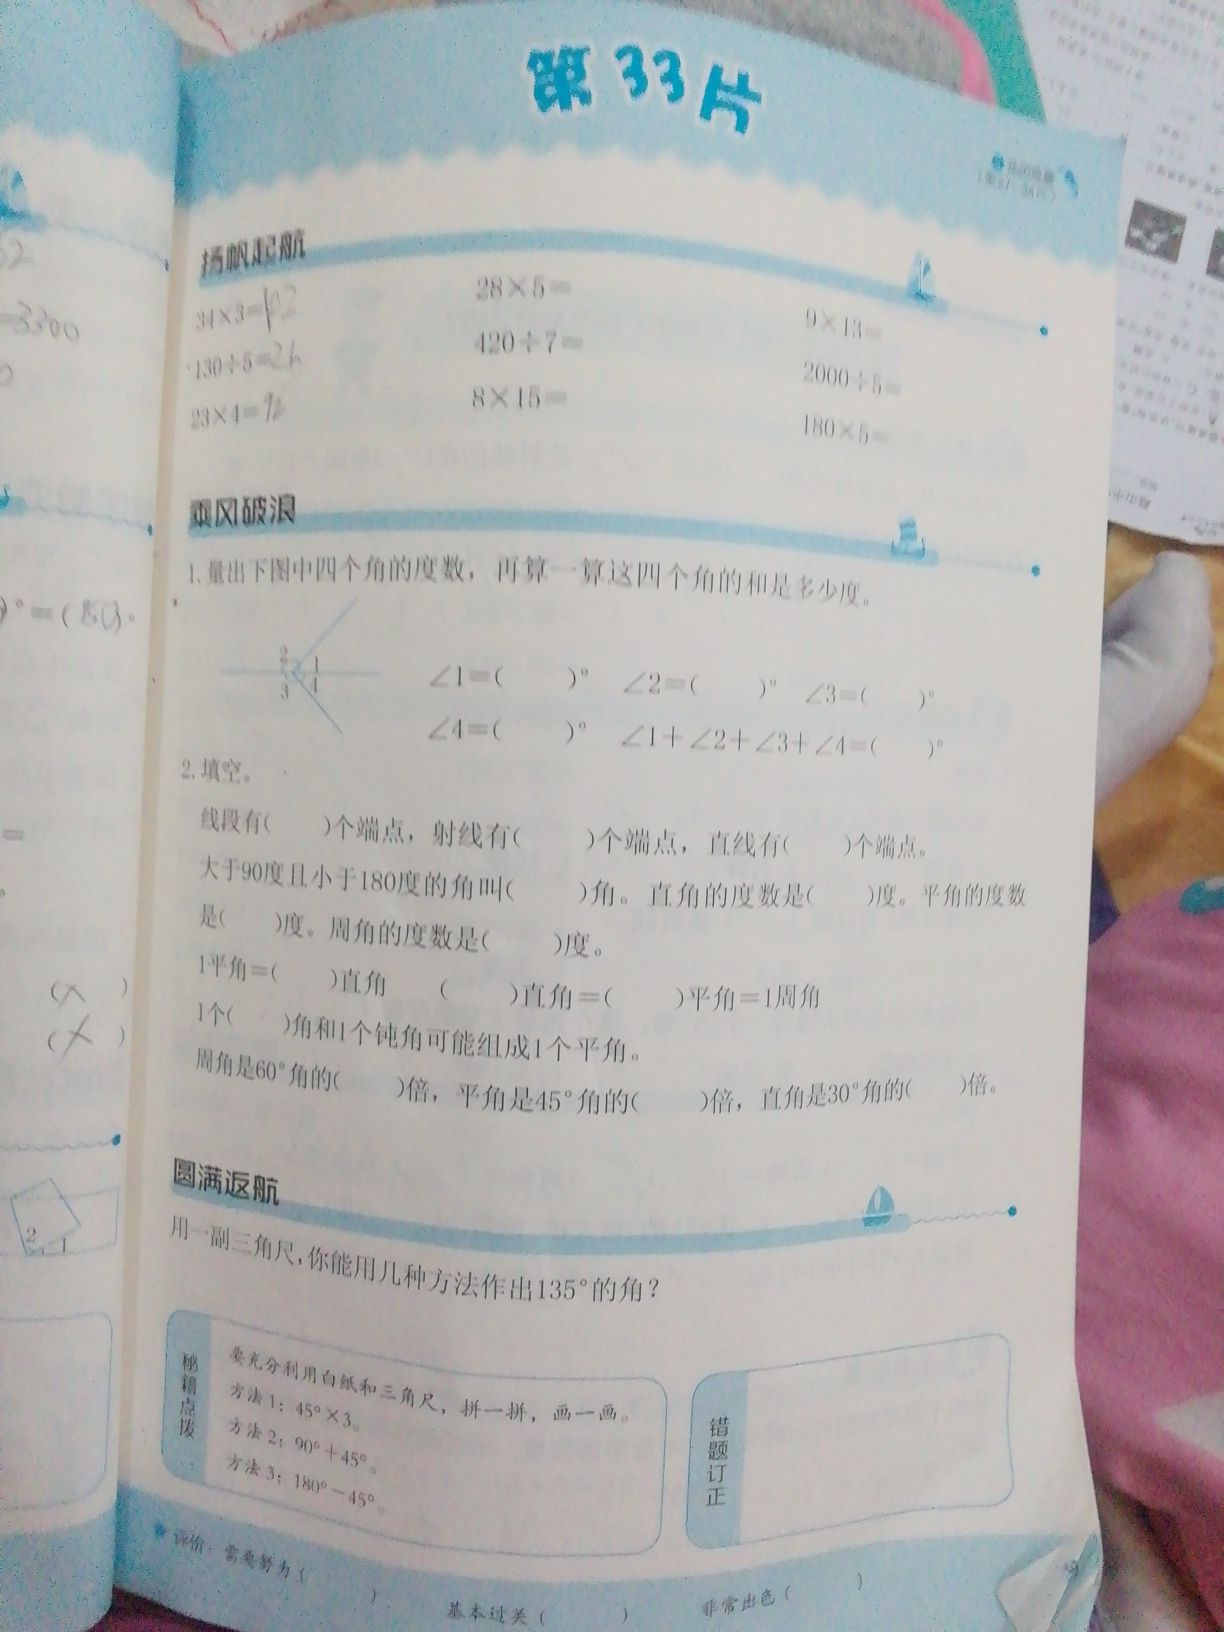 第33片
扬帆起航
34×3=102
28×5=
9×13=
130÷5=26
420÷7=
2000÷5=
23×4=92
8×15=
180×5=
乘风破浪
1.量出下图中四个角的度数，再算一算这四个角的和是多少度。
2 1
3 4
∠1=( )° ∠2=( )° ∠3=( )°
∠4=( )° ∠1+∠2+∠3+∠4=( )°
2.填空。
线段有( )个端点，射线有( )个端点，直线有( )个端点。
大于90度且小于180度的角叫( )角。直角的度数是( )度。平角的度数
是( )度。周角的度数是( )度。
1平角=( )直角 ( )直角=( )平角=1周角
1个( )角和1个钝角可能组成1个平角。
周角是60°角的( )倍，平角是45°角的( )倍，直角是30°角的( )倍。
圆满返航
用一副三角尺,你能用几种方法作出135°的角？
秘籍点拨
要充分利用白纸和三角尺，拼一拼，画一画。
方法1：45°×3。
方法2：90°+45°。
方法3：180°-45°。
错题订正
评价：需要努力( ) 基本过关( ) 非常出色( )
=3300
(×)
(×)
2 1